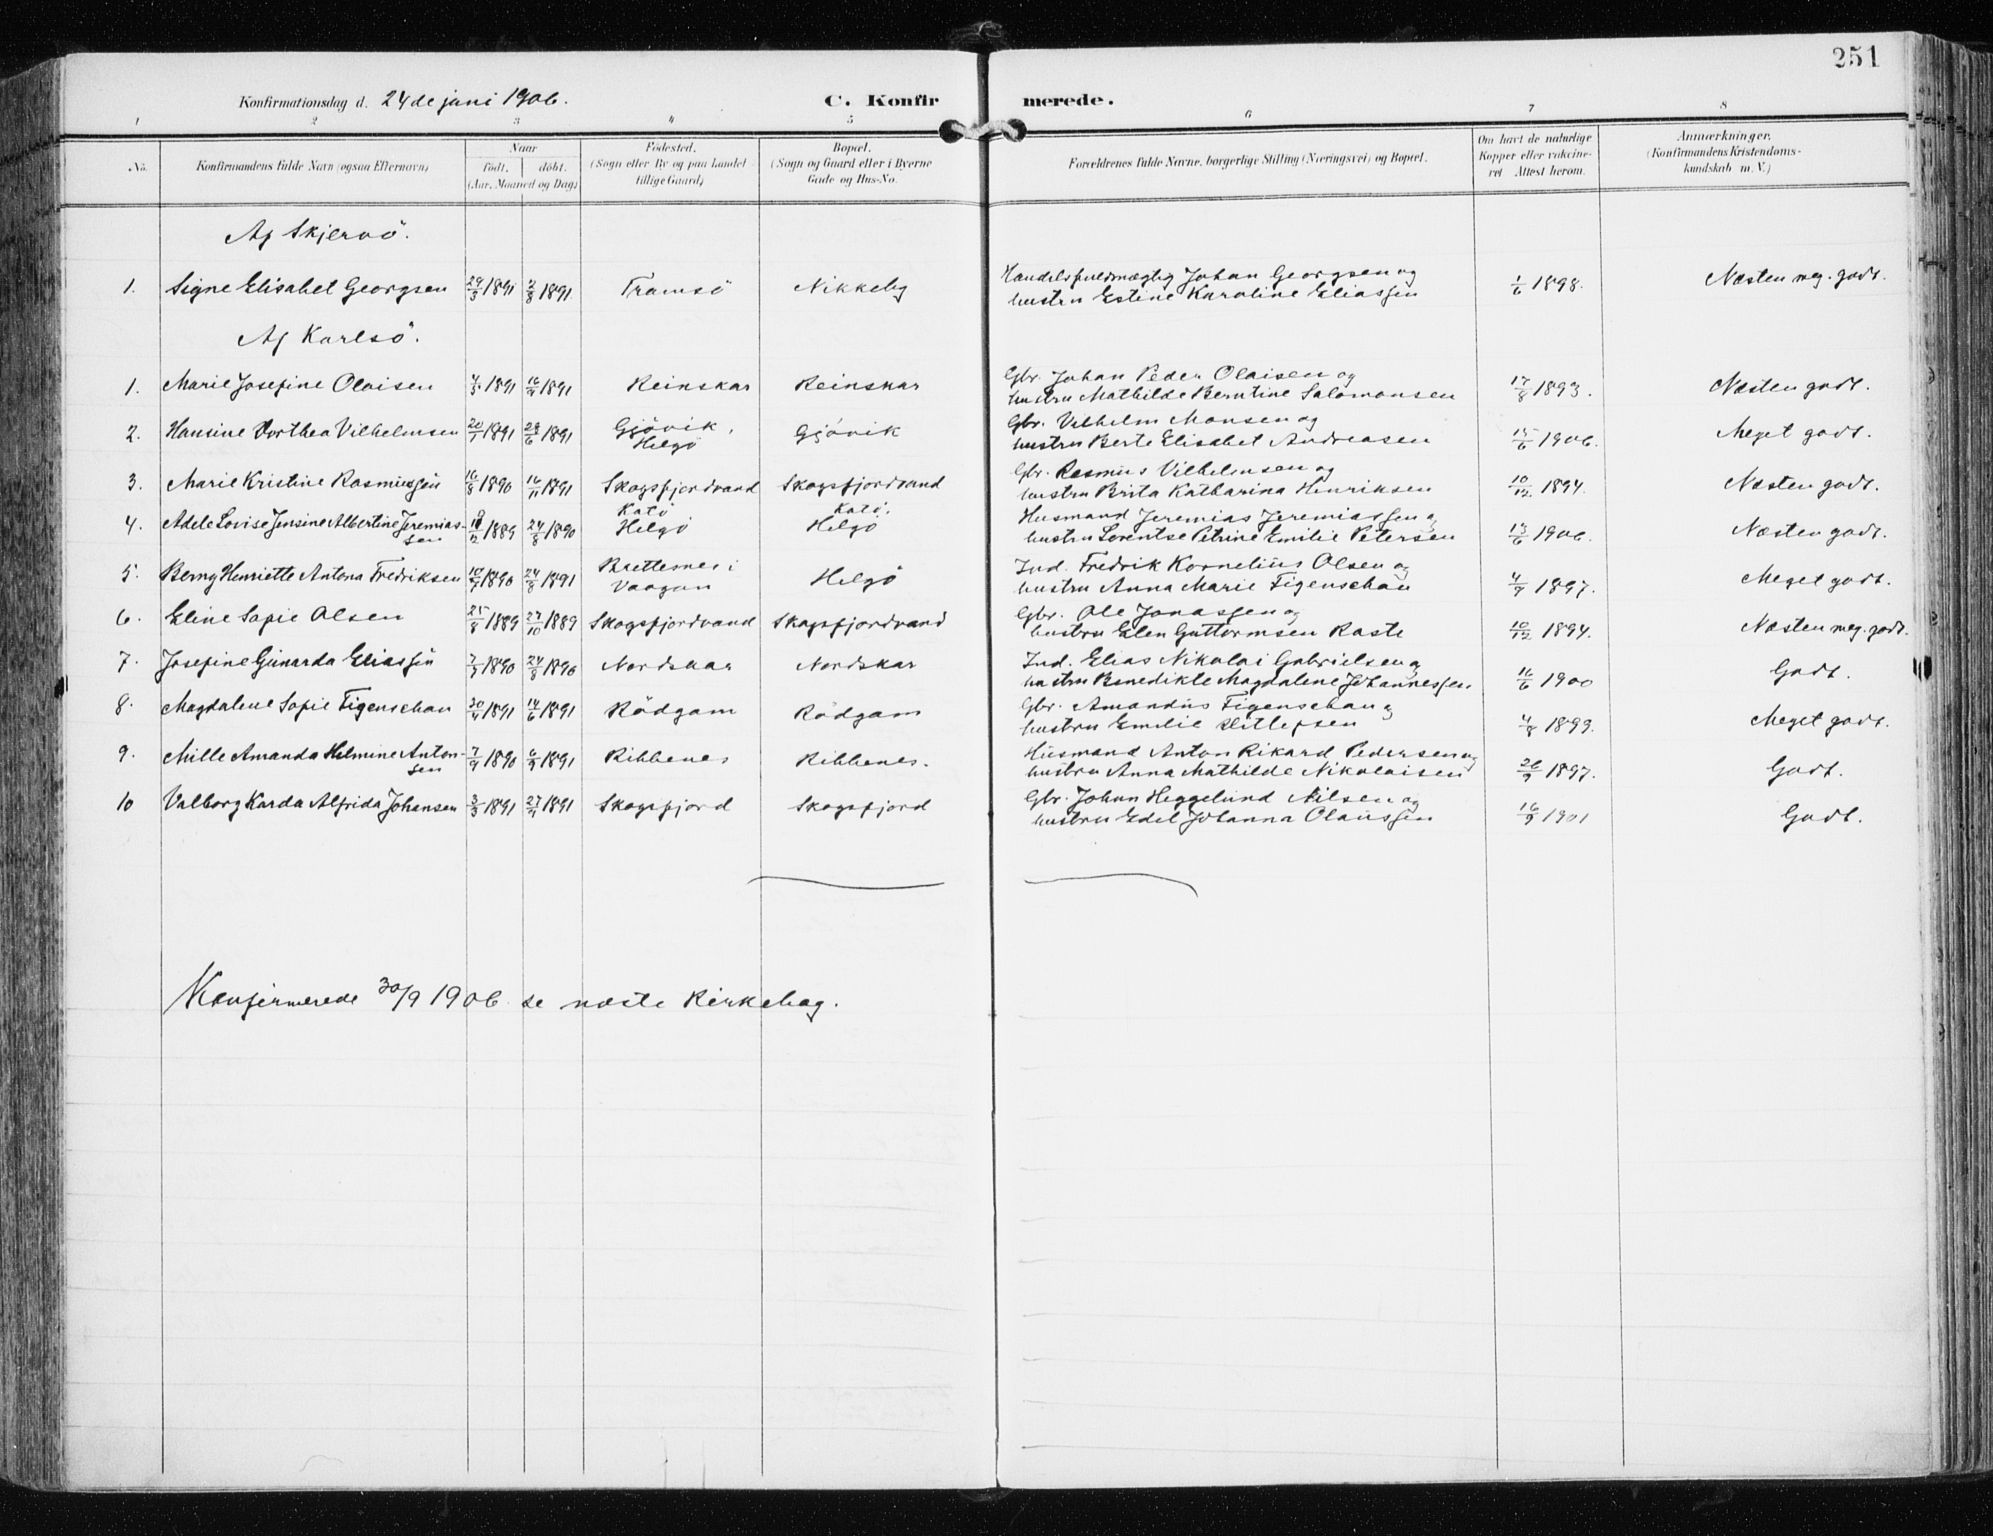 251
Konfirmationsdag d. 24de juni 1906. C. Konfirmerede.
1 2 3 4 5 6 7 8
No. Konfirmandens fulde Navn (ogsaa Efternavn) Naar født. døbt. (Aar, Maaned og Dag) Fødested. (Sogn eller By og paa Landet tillige Gaard) Bopæl. (Sogn og Gaard eller i Byerne Gade og Hus-No. Forældrenes fulde Navne, borgerlige Stilling (Næringsvei) og Bopæl. Om havt de naturlige Kopper eller vaccineret Attest herom. Anmærkninger. (Konfirmandens Kristendomskundskab m. V.)
Af Skjervö.
1. Signe Elisabet Georgsen 29/3 1891 2/8 1891 Tromsö Nikkeby Handelsfuldmægtig Johan Georgsen og hustru Estine Karoline Eliassen 1/6 1898. Næsten meg. godt.
Af Karlsö.
1. Marie Josefine Olaisen 4/3 1891 1891 Reinskar Reinskar Gbr. Johan Peder Olaisen og hustru Mathilde Berntine Salomonsen 17/8 1893. Næsten godt.
2. Hansine Dorthea Vilhelmsen 20/1 1891 28/6 1891 Gjövik, Helgö Gjövik Gbr. Vilhelm Monsen og hustru Berte Elisabet Andreasen 15/6 1906. Meget godt.
3. Marie Kristine Rasmussen 16/8 1890 16/11 1891 Skogsfjordvand Skogsfjordvand Gbr. Rasmus Vilhelmsen og hustru Brita Katharina Henriksen 10/12 1894. Næsten godt.
4. Adele Lovise Jensine Albertine Jeremiassen 1889 24/8 1890 Katö Helgö Katö, Helgö Husmand Jeremias Jeremiassen og hustru Lorentse Petrine Emilie Petersen 1906. Næsten godt.
5. Berny Henriette Antona Fredriksen 1890 24/8 1891 Brettesnes i Vaagan Helgö Ind. Fredrik Kornelius Olsen og hustru Anna Marie Figenschau 1897. Meget godt.
6. Eline Sofie Olsen 25/8 1889 27/10 1889 Skogsfjordvand Skogsfjordvand Gbr. Ole Jonassen og hustru Elen Guttormsen Raste 10/12 1894. Næsten meg. godt.
7. Josefine Gunarda Eliassen 1890 24/8 1890 Nordskar Nordskar Ind. Elias Nikolai Gabrielsen og hustru Benedikte Magdalene Johannessen 16/6 1900 Godt.
8. Magdalene Sofie Figenschau 1891 14/6 1891 Rödgam Rödgam Gbr. Amandus Figenschau og hustru Emilie Ditlefsen 4/8 1899. Meget godt.
9. Mille Amanda Helmine Antonsen 1890 1891 Ribbenes Ribbenes. Husmand Anton Rikard Pedersen og hustru Anna Mathilde Nikolaisen 1897. Godt.
10 Valborg Karda Alfrida Johansen 3/3 1891 1891 Skogsfjord Skogsfjord Gbr. Johan Heggelund Nilsen og hustru Edel Johanna Olaussen 16/9 1901 Godt.
Konfirmerede 30/9 1906 se næste Kirkebog.